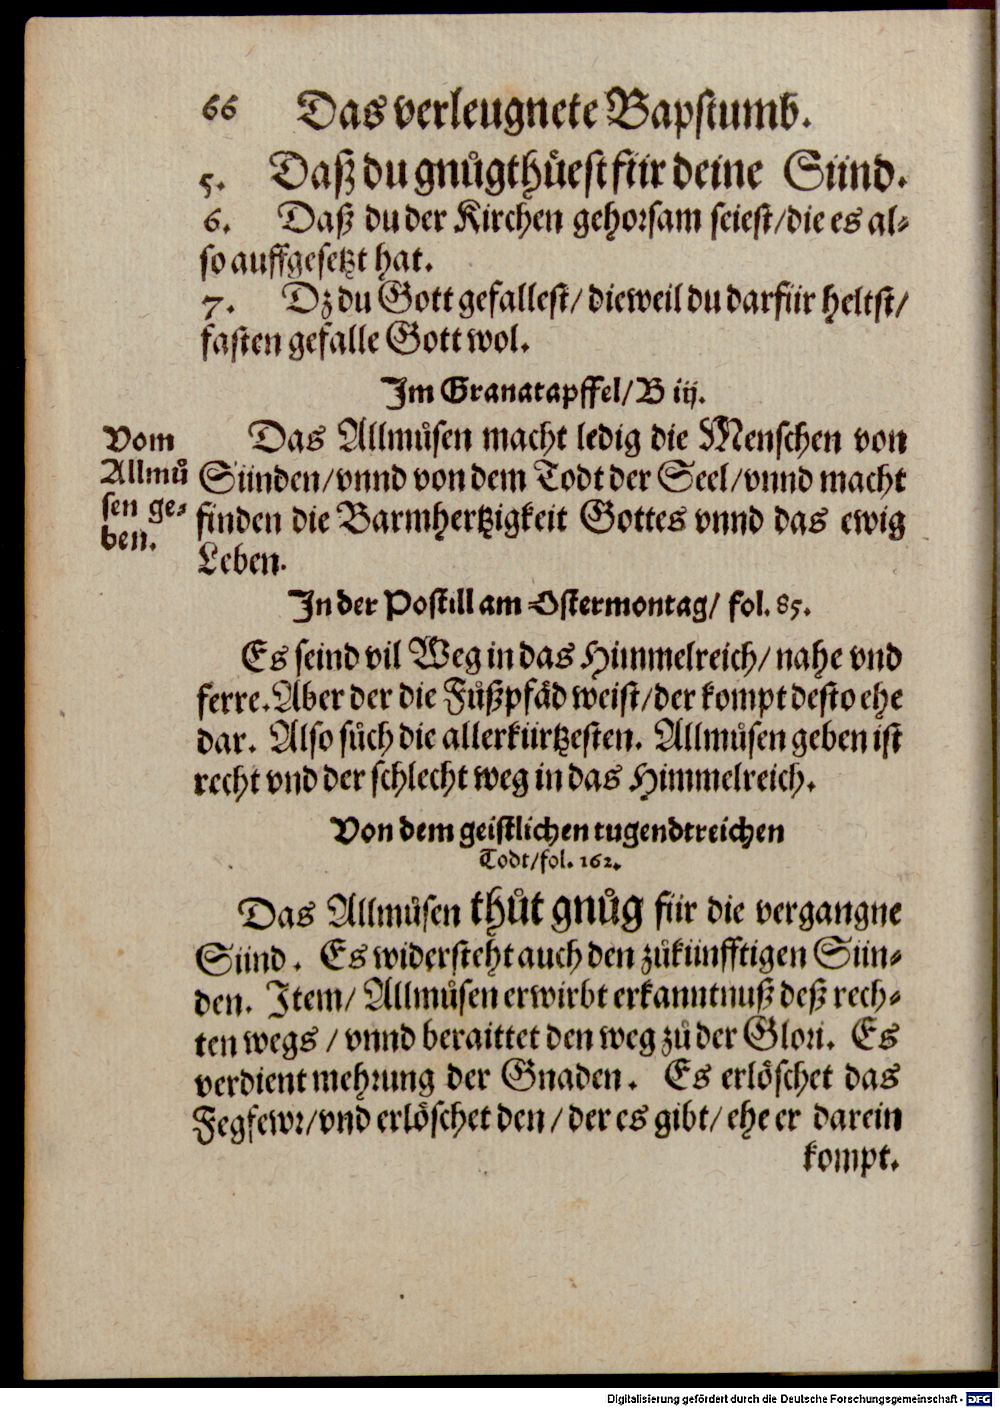 66 Das verleugnete Bapstumb.
5. Daß du gnůgthüest für deine Sünd.
6. Daß du der Kirchen gehorsam seiest/die es al-
so auffgesetzt hat.
7. Dz du Gott gefallest/ dieweil du darfür heltst/
fasten gefalle Gott wol.
Im Granatapffel/ B iij.
Vom
Allmů
sen ge-
ben.
Das Allmůsen macht ledig die Menschen von
Sünden/vnnd von dem Todt der Seel/vnnd macht
finden die Barmhertzigkeit Gottes vnnd das ewig
Leben.
In der Postill am Ostermontag/ fol. 85.
Es seind vil Weg in das Himmelreich/ nahe vnd
ferre. Aber der die Fůßpfäd weist/der kompt desto ehe
dar. Also sůch die allerkürtzesten. Allmůsen geben ist
recht vnd der schlecht weg in das Himmelreich.
Von dem geistlichen tugendtreichen
Todt/fol. 162.
Das Allmůsen thůt gnůg für die vergangne
Sünd. Es widersteht auch den zůkünfftigen Sün-
den. Item/ Allmůsen erwirbt erkanntnuß deß rech-
ten wegs / vnnd beraittet den weg zů der Glori. Es
verdient mehrung der Gnaden. Es erlöschet das
Fegfewr/vnd erlöschet den/ der es gibt/ ehe er darein
kompt.
Digitalisierung gefördert durch die Deutsche Forschungsgemeinschaft - DFG